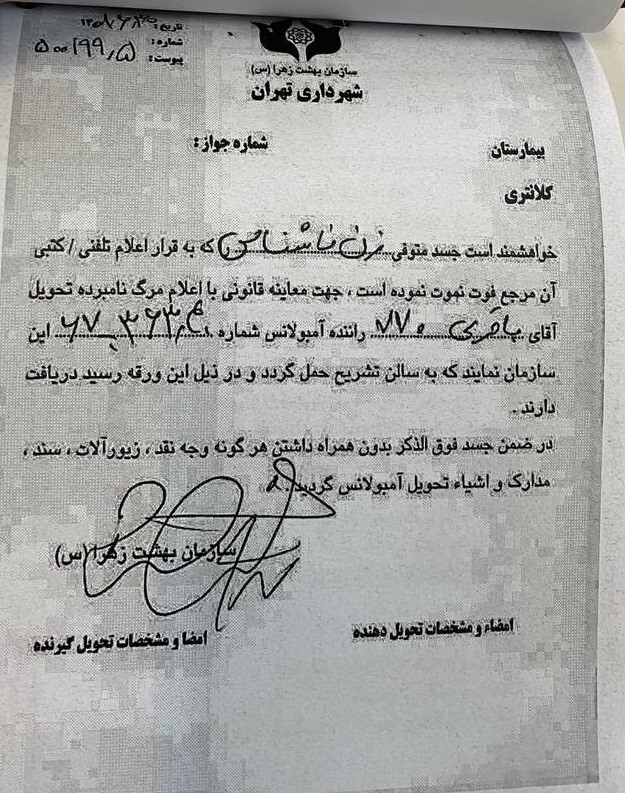 تاریخ:
شماره: ۵۰۰۱۹۹٫۵
پیوست:
سازمان بهشت زهرا (س)
شهرداری تهران
بیمارستان
شماره جواز:
کلانتری
خواهشمند است جسد متوفی زن ناشناس را که به قرار اعلام تلفنی / کتبی
آن مرجع فوت نموت نموده است، جهت معاینه قانونی با اعلام مرگ نامبرده تحویل
آقای باقری ۸۷۰ راننده آمبولانس شماره این
سازمان نمایند که به سالن تشریح حمل گردد و در ذیل این ورقه رسید دریافت
دارند.
در ضمن جسد فوق الذکر بدون همراه داشتن هر گونه وجه نقد، زیورآلات، سند،
مدارک و اشیاء تحویل آمبولانس گردید.
سازمان بهشت زهرا (س)
امضاء و مشخصات تحویل دهنده
امضا و مشخصات تحویل گیرنده